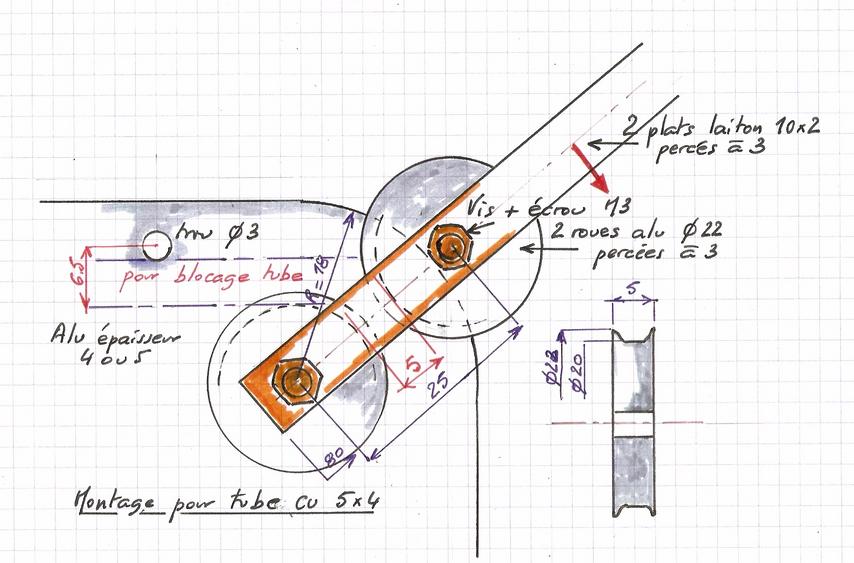 2 plats laiton 10x2
percés à 3
Vis + écrou M3
trou Ø3
2 roues alu Ø22
percées à 3
6.5
pour blocage tube
R=18
5
Alu épaisseur
4 ou 5
Ø20
5
25
80
Montage pour tube cu 5x4